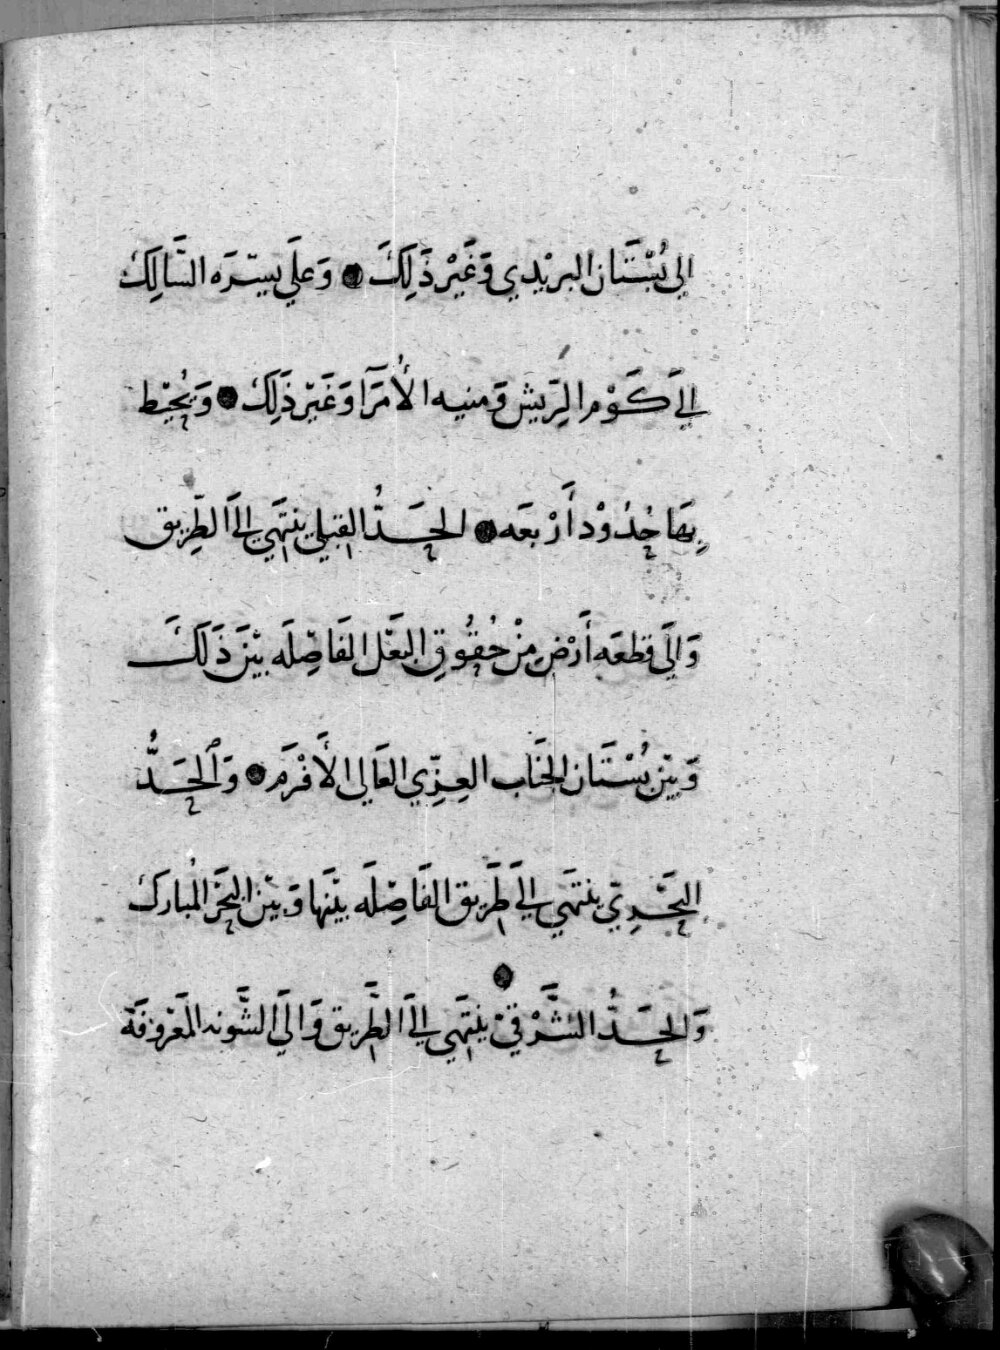 الي بُسْتَان البريْدي وَغَيْر ذَلِكَ ● وَعلَي يسْرَه السَّالِك
اِلَي كَوْم الرِيش وَمنيه الأُمَرَآ وَغَيْر ذَلِكَ ● وَيُحيْط
بِهَا حُدُوْد أَرْبعَه ● الحَدُّ القِبلي ينتَهِي اِلَي الطَّرِيق
وَالَي قطعَه أَرْضٍ مِنْ حُقُوقِ البَعْل الفَاصِلَه بيْنَ ذَلَكَ
وَبيْن بُسْتَان الجَنَاب العِزِّي العَالي الأَفْرَم ● وَٱلحَدُّ
البَحْرِي ينتَهي اِلَي طَرِيق الفَاصِلَه بيْنَها وَبيْن البَحْرَ المُبارك
وَالحَدُّ الشَّرْقيْ ينْتَهَي اِلَي الطَّرِيق وَالَي الشَّونه المَعْرُوْفَة ●